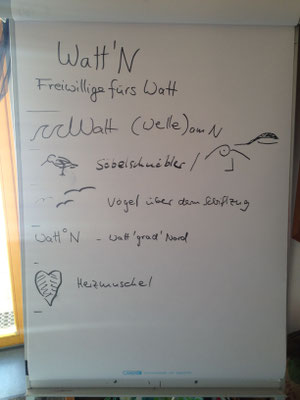 Watt'N
Freiwillige fürs Watt
Watt (Welle) am N
Säbelschnäbler /
Vogel über dem Schriftzug
Watt°N - Watt 'grad' Nord
Herzmuschel